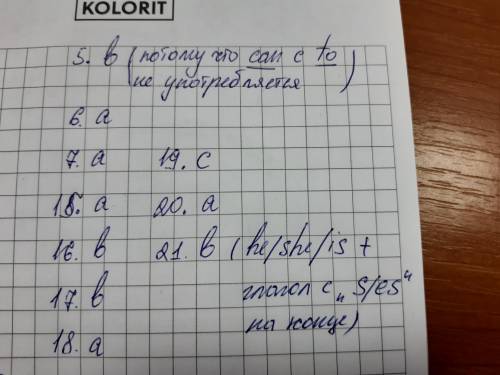 KOLORIT
5. b (потому что can с to
не употребляется)
6. a
7. a
15. a
16. b
17. b
18. a
19. c
20. a
21. b (he/she/is +
глагол с „s/es"
на конце)